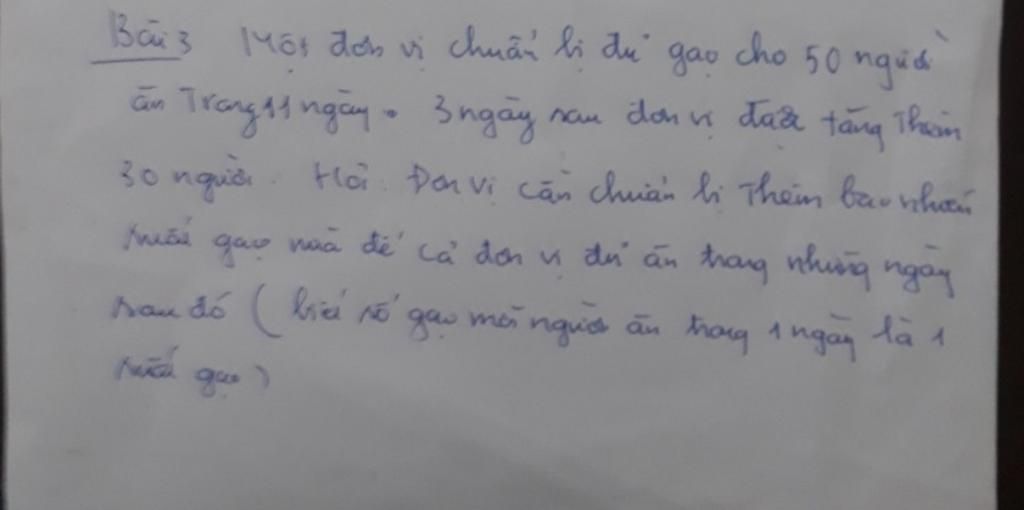 Bài 3 Một đơn vị chuẩn bị đủ gạo cho 50 người
ăn Trong 11 ngày. 3 ngày sau đơn vị tăng Thêm
30 người. Hỏi Đơn vị cần chuẩn bị Thêm bao nhiêu
suất gạo nữa để cả đơn vị đủ ăn trong những ngày
sau đó ( biết số gạo mỗi người ăn trong 1 ngày là 1
suất gạo )